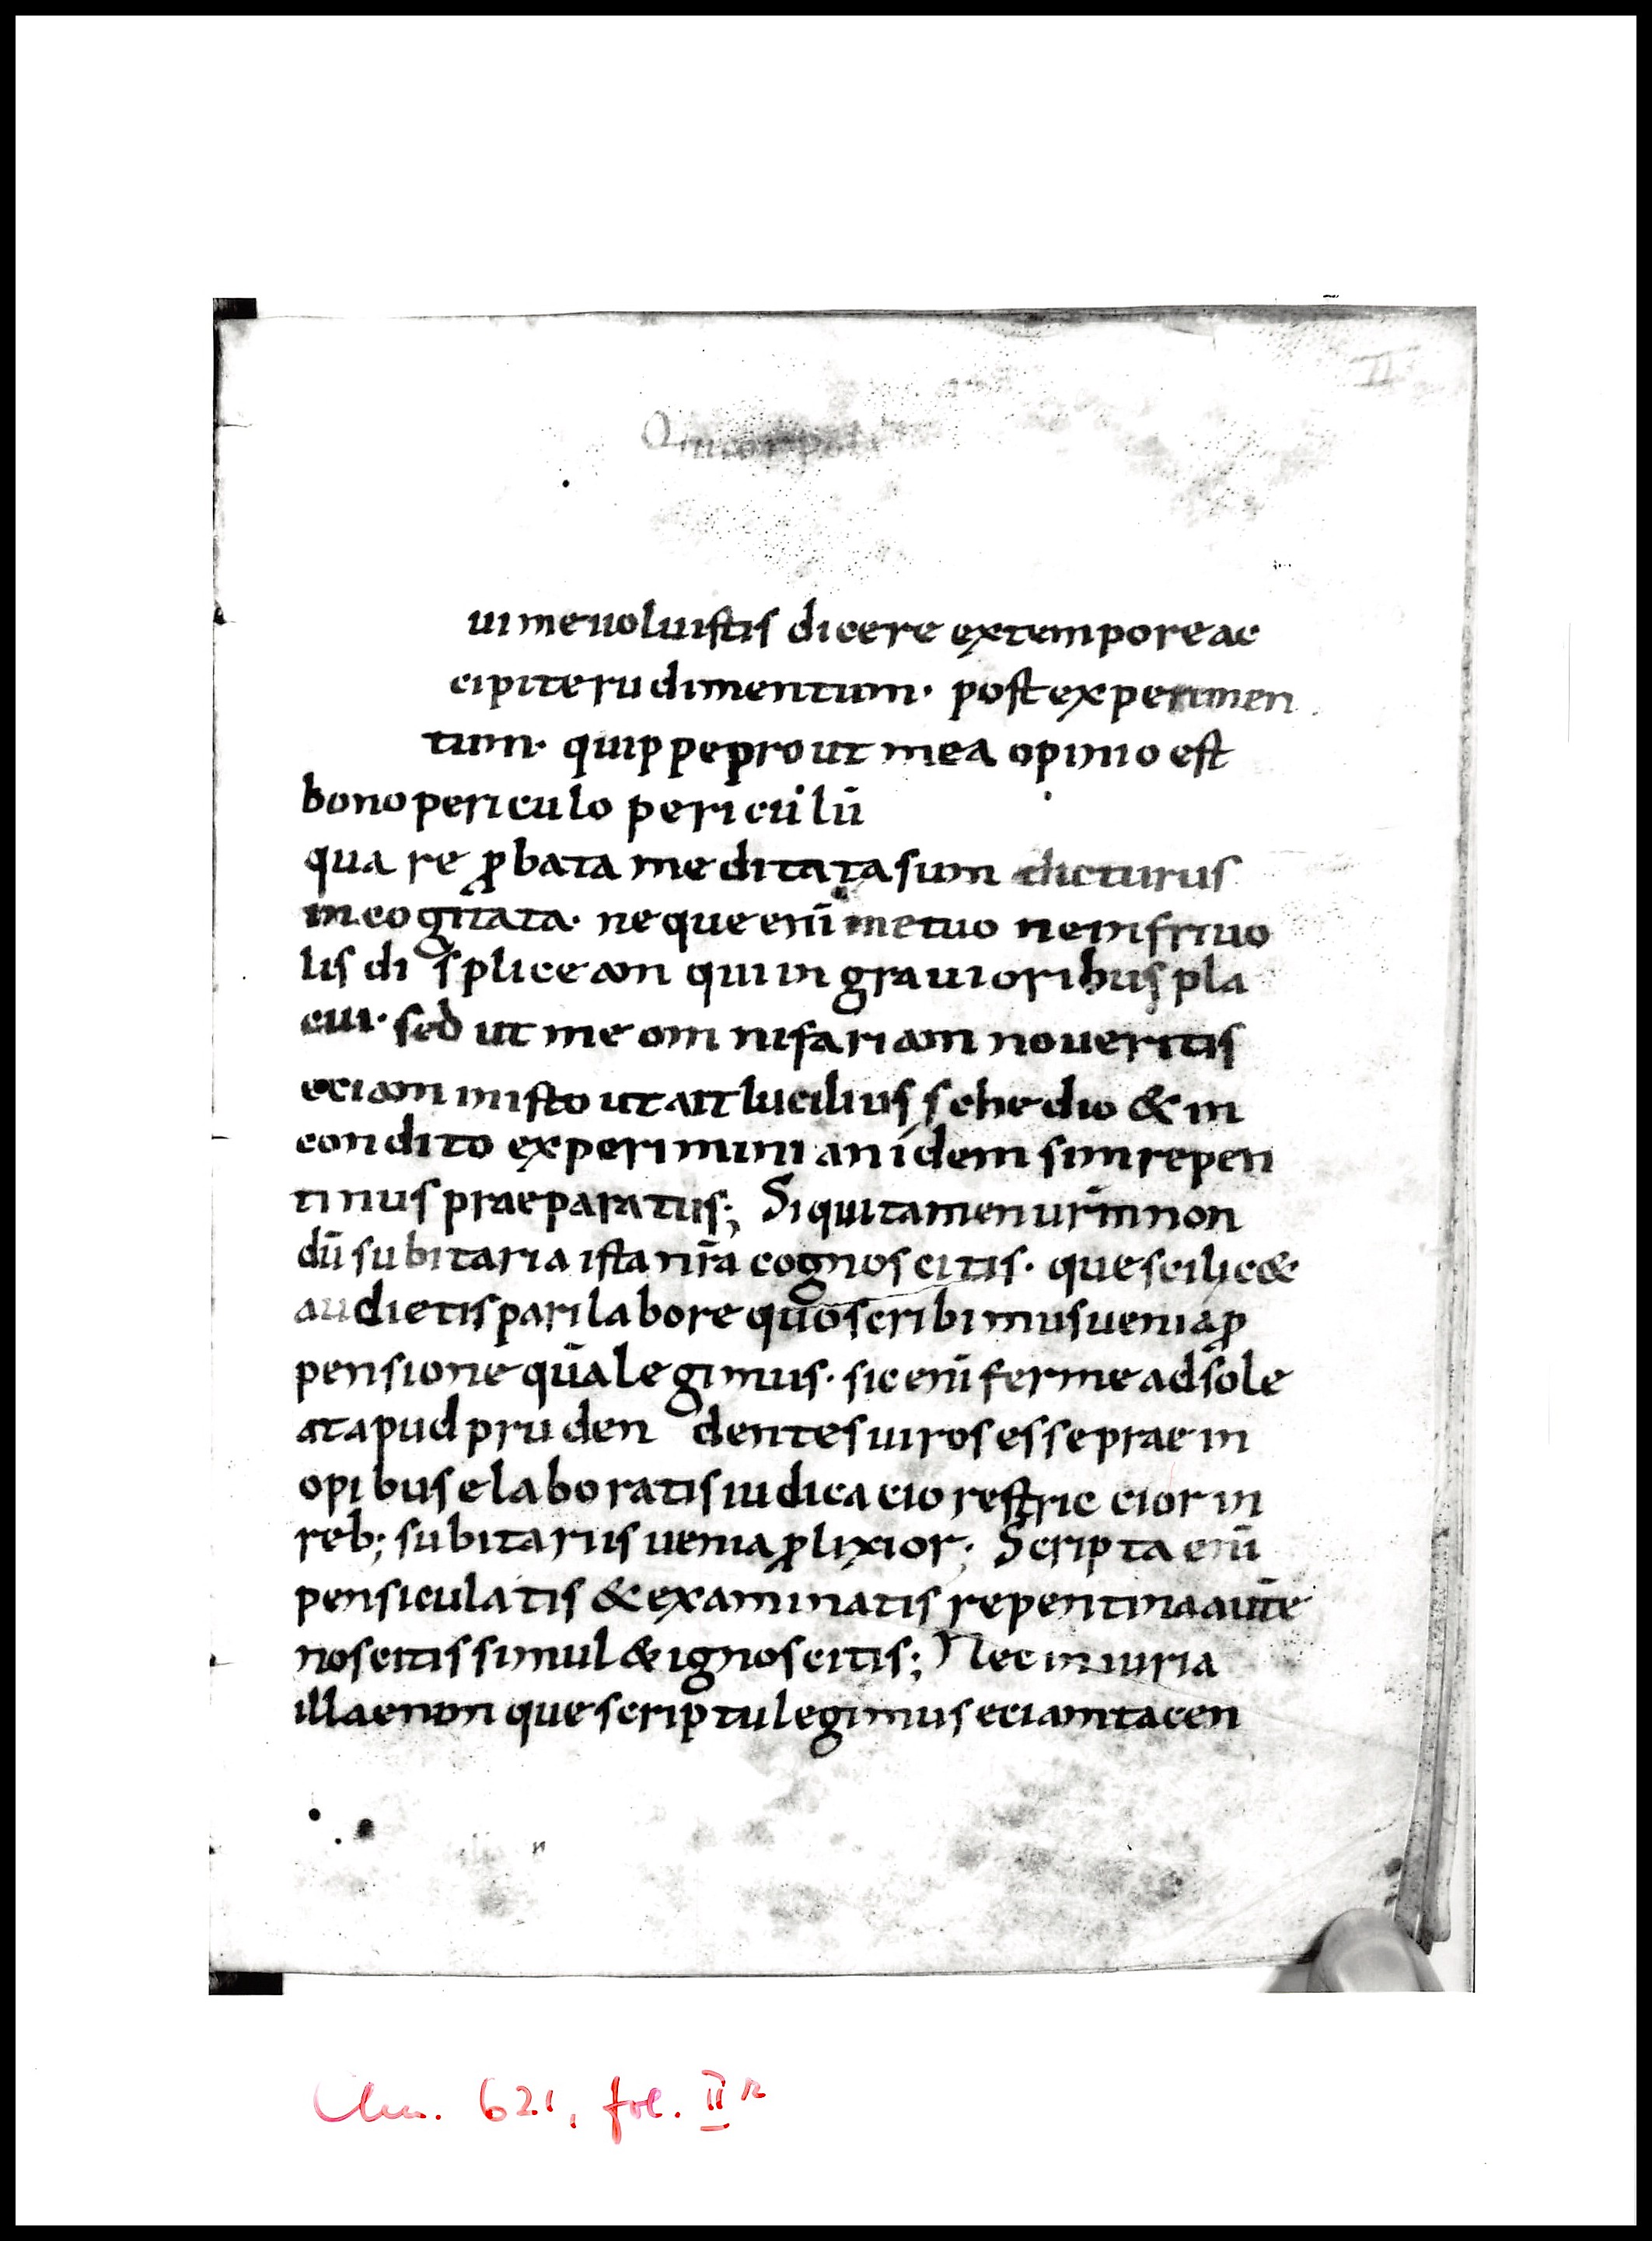 II
ui me uoluistis dicere ex tempore ac
cipite rudimentum· post experimen
tum· quippe prout mea opinio est
bono periculo periculū
qua re ꝓbata meditata sum dicturus
incogitata· neque enī metuo ne in friuo
lis di spliceam qui in grauioribus pla
cui· sed ut me omnifariam noueritis
eciam in isto ut ait lucilius schedio & in
condito experimini an idem sim repen
tinus praeparatus; Si qui tamen ur̄m non
dū subitaria ista nr̄a cognoscitis· que scilic&
audietis pari labore quo scribimus uenia ꝓ
pensione quā legimus· sic enī ferme adsole
at apud pruden dentes uiros esse prae in
opibus elaboratis iudicacio restriccior in
reb; subitariis uenia ꝓlixior; Scripta enī
pensiculatis & examinatis repentina autē
noscitis simul & ignoscitis; Nec iniuria
illa enon que scriptu legimus eciam tacen
Clm. 621, fol. IIr